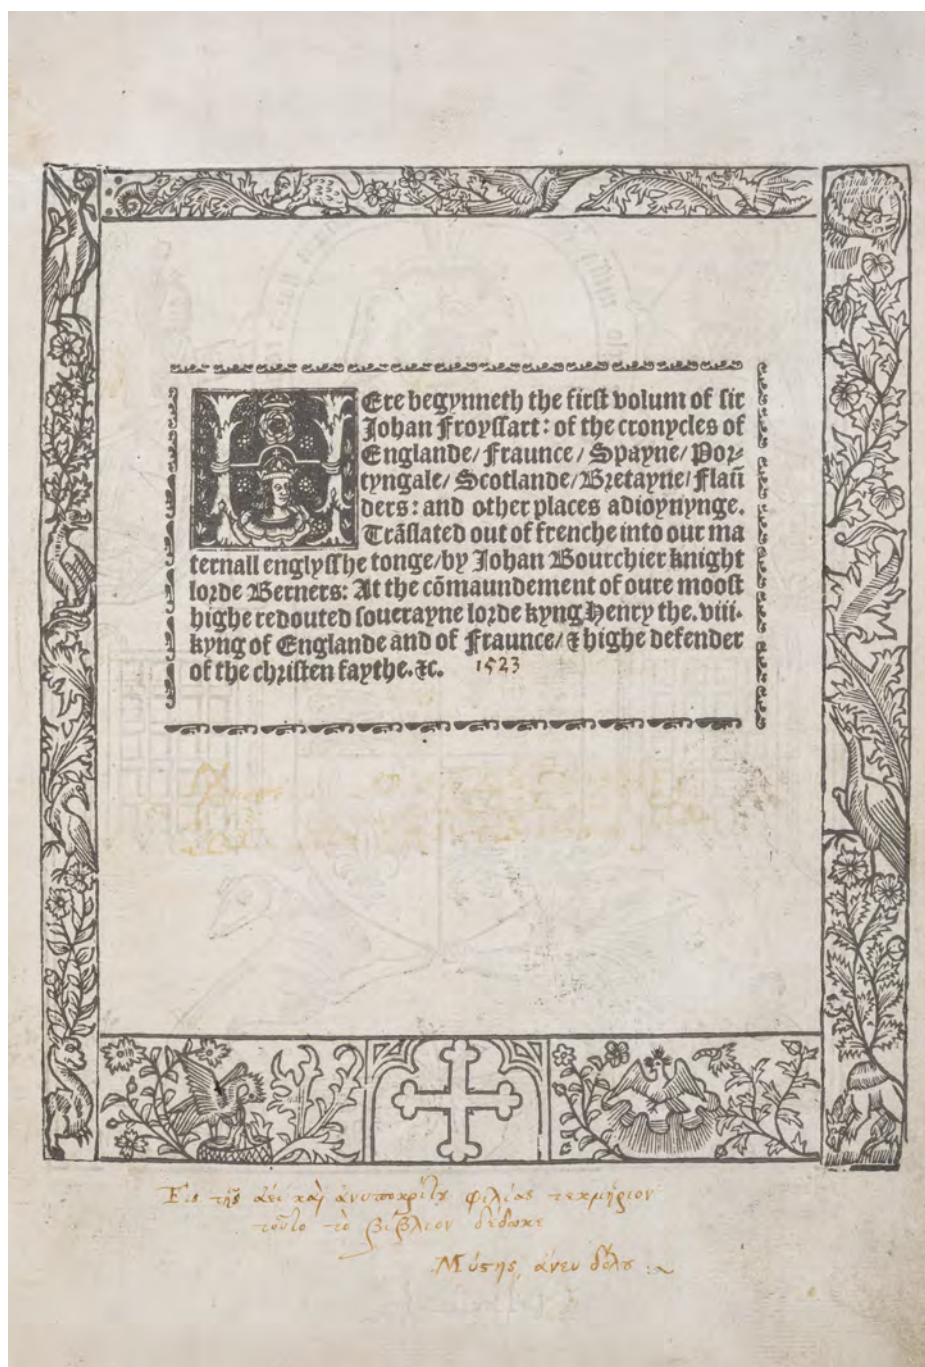 HEre begynneth the first volum of sir
Johan Froyssart: of the cronycles of
Englande/ Fraunce/ Spayne/ Por⸗
tyngale/ Scotlande/ Bretayne/ Flaũ
ders: and other places adioynynge.
Trãslated out of frenche into our ma
ternall englysshe tonge/ by Johan Bourchier knight
lorde Berners: At the cõmaundement of oure moost
highe redouted souerayne lorde kyng Henry the .viii.
kyng of Englande and of Fraunce/ & highe defender
of the christen faythe. &c. 1523
Εἰς τῆς ἀεὶ καὶ ἀνυποκρίτȣ φιλίας τεκμήριον
τοῦτο τὸ βίβλιον δέδωκε
Μύστης, ἄνευ δόλȣ :~